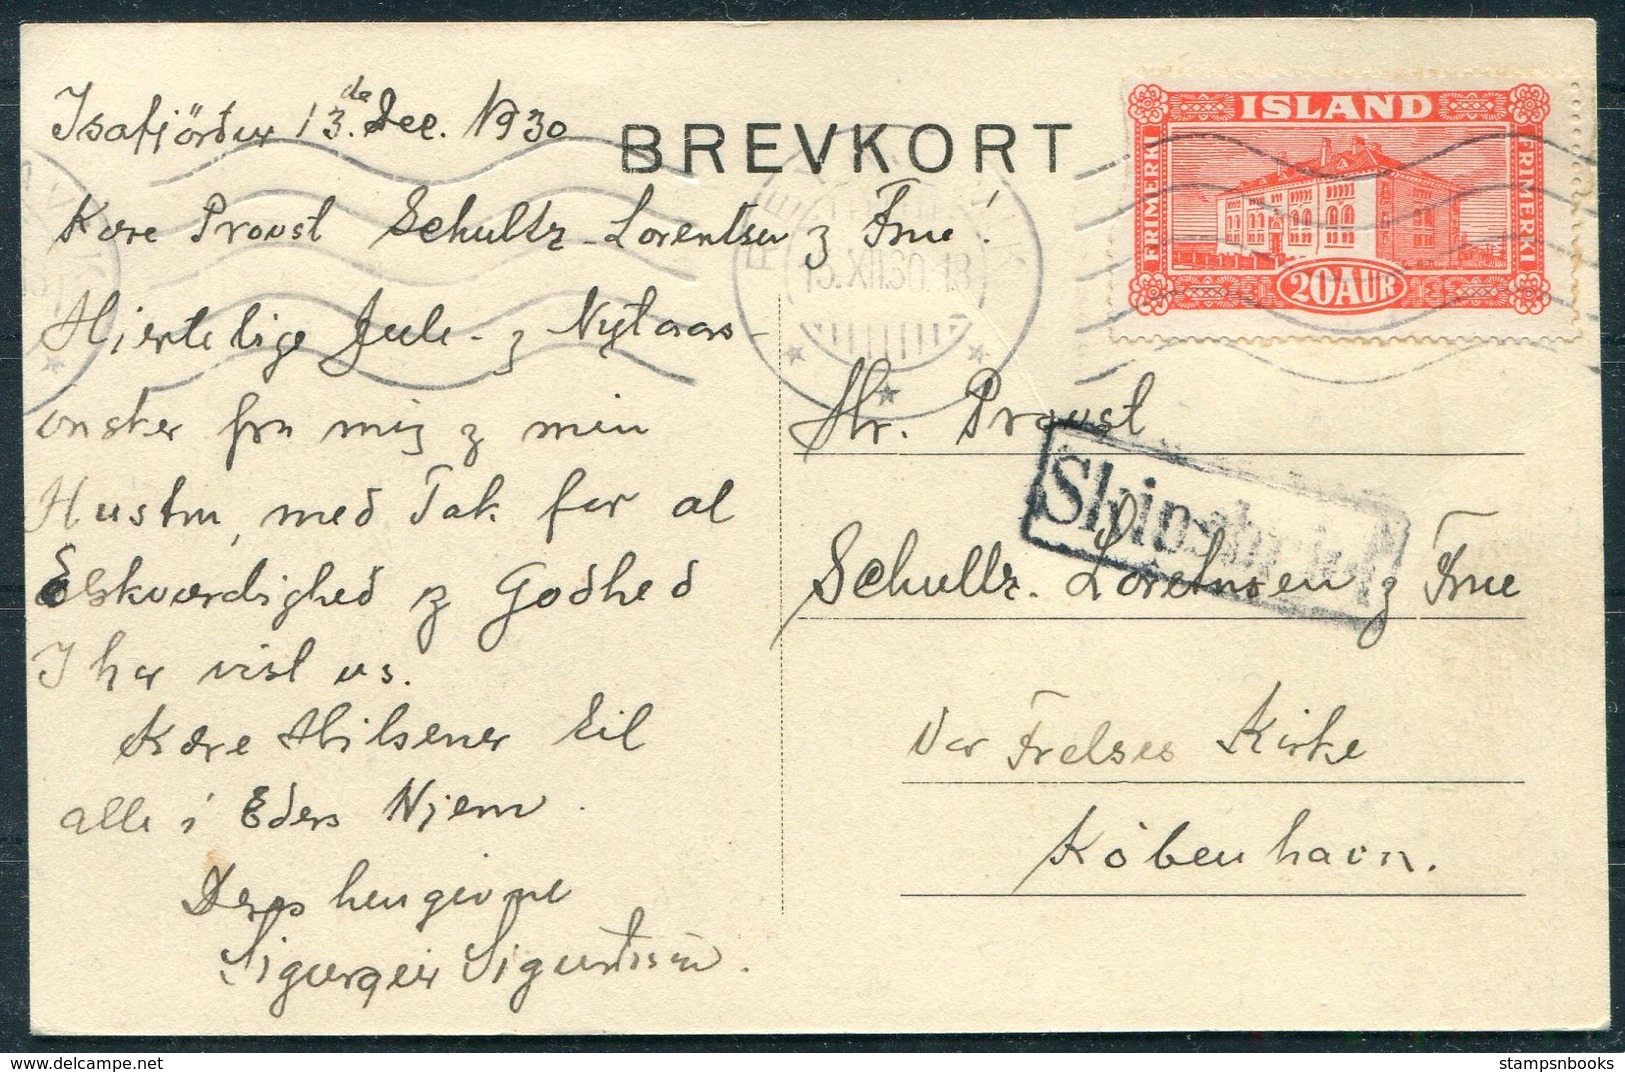 Isafjördur 13.de Dec. 1930
BREVKORT
Kære Provst Schultz-Lorentsen & Frue!
Hjertelige Jule- & Nytaars-
ønsker fra mig & min
Hustru, med Tak for al
Elskværdighed & Godhed
I har vist os.
Kære Hilsener til
alle i Eders Hjem.
Deres hengivne
Sigurgeir Sigurdsson.
ISLAND
FRIMERKI
FRIMERKI
20 AUR
XII.30. 18
Hr. Provst
Schultz-Lorentsen & Frue
Skipsbrjef
Vor Frelses Kirke
København.
stampsnbooks